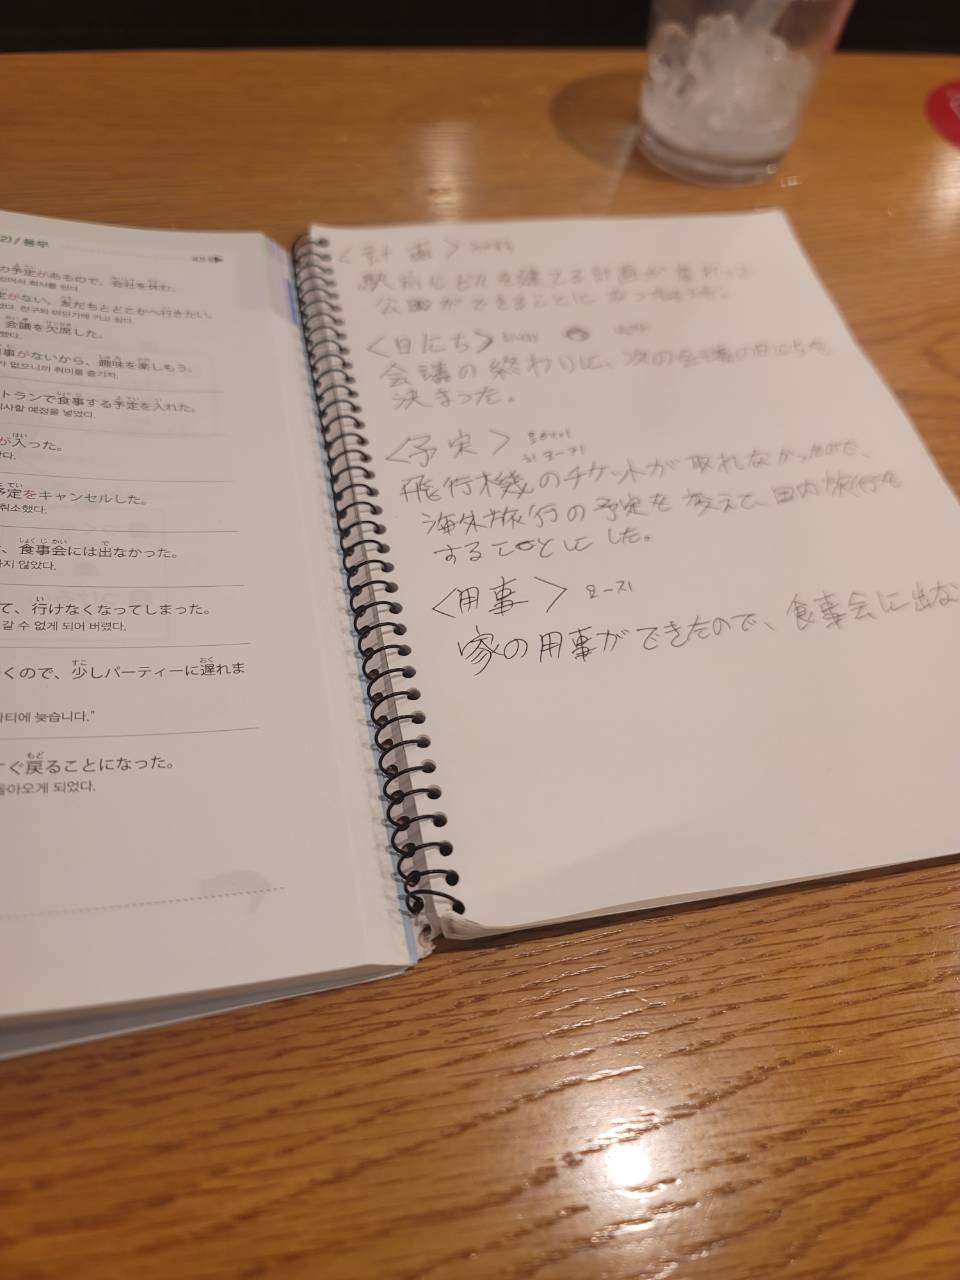 の予定があるので、会社を休む。
ない、友だちとどこかへ行きたい。
会議を欠席した。
事がないから、趣味を楽しもう。
가 없으니까 취미를 즐기자.
トランで食事する予定を入れた。
식사할 예정을 넣었다.
が入った。
予定をキャンセルした。
취소했다.
、食事会には出なかった。
가지 않았다.
て、行けなくなってしまった。
갈 수 없게 되어 버렸다.
くので、少しパーティーに遅れま
파티에 늦습니다."
すぐ戻ることになった。
돌아오게 되었다.
<計画>
公園ができることになった
<日にち>
会議の終わりに、次の会議の日にちを
決まった。
<予定>
飛行機のチケットが取れなかったので、
海外旅行の予定を変えて、国内旅行を
することにした。
<用事> 요-지
家の用事ができたので、食事会に出な